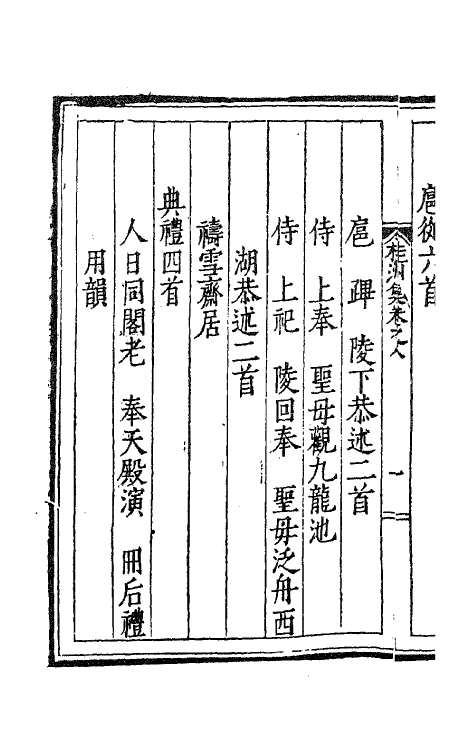 扈從六首
桂洲集卷之八
一
扈 蹕 陵下恭述二首
侍 上奉 聖母觀九龍池
侍 上祀 陵回奉 聖母泛舟西
湖恭述二首
禱雪齋居
典禮四首
人日同閣老 奉天殿演 冊后禮
用韻